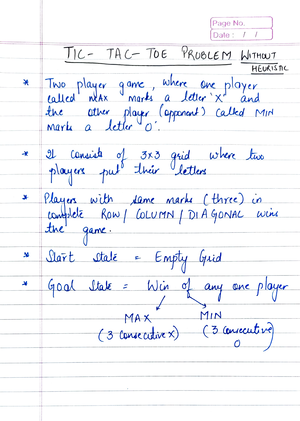 Page No.
Date : / /
TIC - TAC - TOE PROBLEM WITHOUT
HEURISTIC
* Two player game, where one player
called MAX marks a letter 'X' and
the other player (opponent) called MIN
marks a letter 'O'.
* It consists of 3x3 grid where two
players put their letters
* Players with same marks (three) in
complete ROW / COLUMN / DIAGONAL wins
the game.
* Start State = Empty Grid
* Goal State = Win of any one player
MAX MIN
(3 consecutive X) (3 consecutive
O)